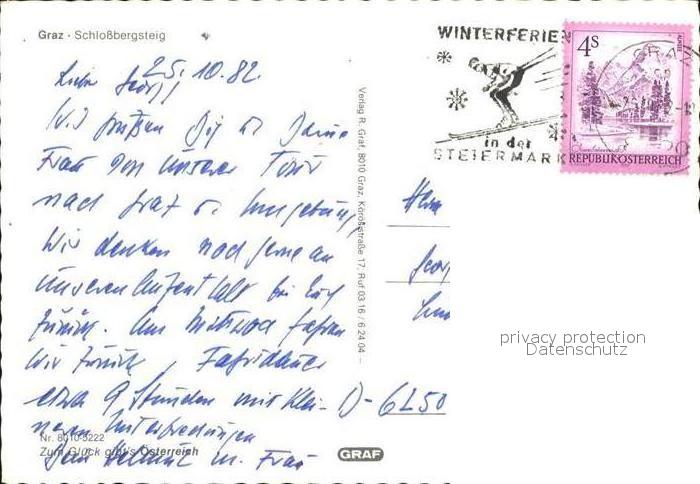 Graz · Schloßbergsteig
25.10.82.
Lieber Georg!
Wir grüßen Dich u. Deine
Frau von unserer Tour
nach Graz u. Umgebung,
Wir denken noch gerne an
unseren Aufenthalt bei Euch
zurück. Am Mittwoch fahren
wir zurück, Fahrdauer
etwa 9 Stunden mit klei-
neren Unterbrechungen
Dein Helmut m. Frau
Nr. 8010-5222
Zum Glück gibt's Österreich
Verlag R. Graf, 8010 Graz, Korösistraße 17, Ruf 03 16 / 6 24 04 –
GRAF
WINTERFERIEN
in der
STEIERMARK
4S
REPUBLIK ÖSTERREICH
GRAZ
Herrn
Georg
D-6250
privacy protection
Datenschutz